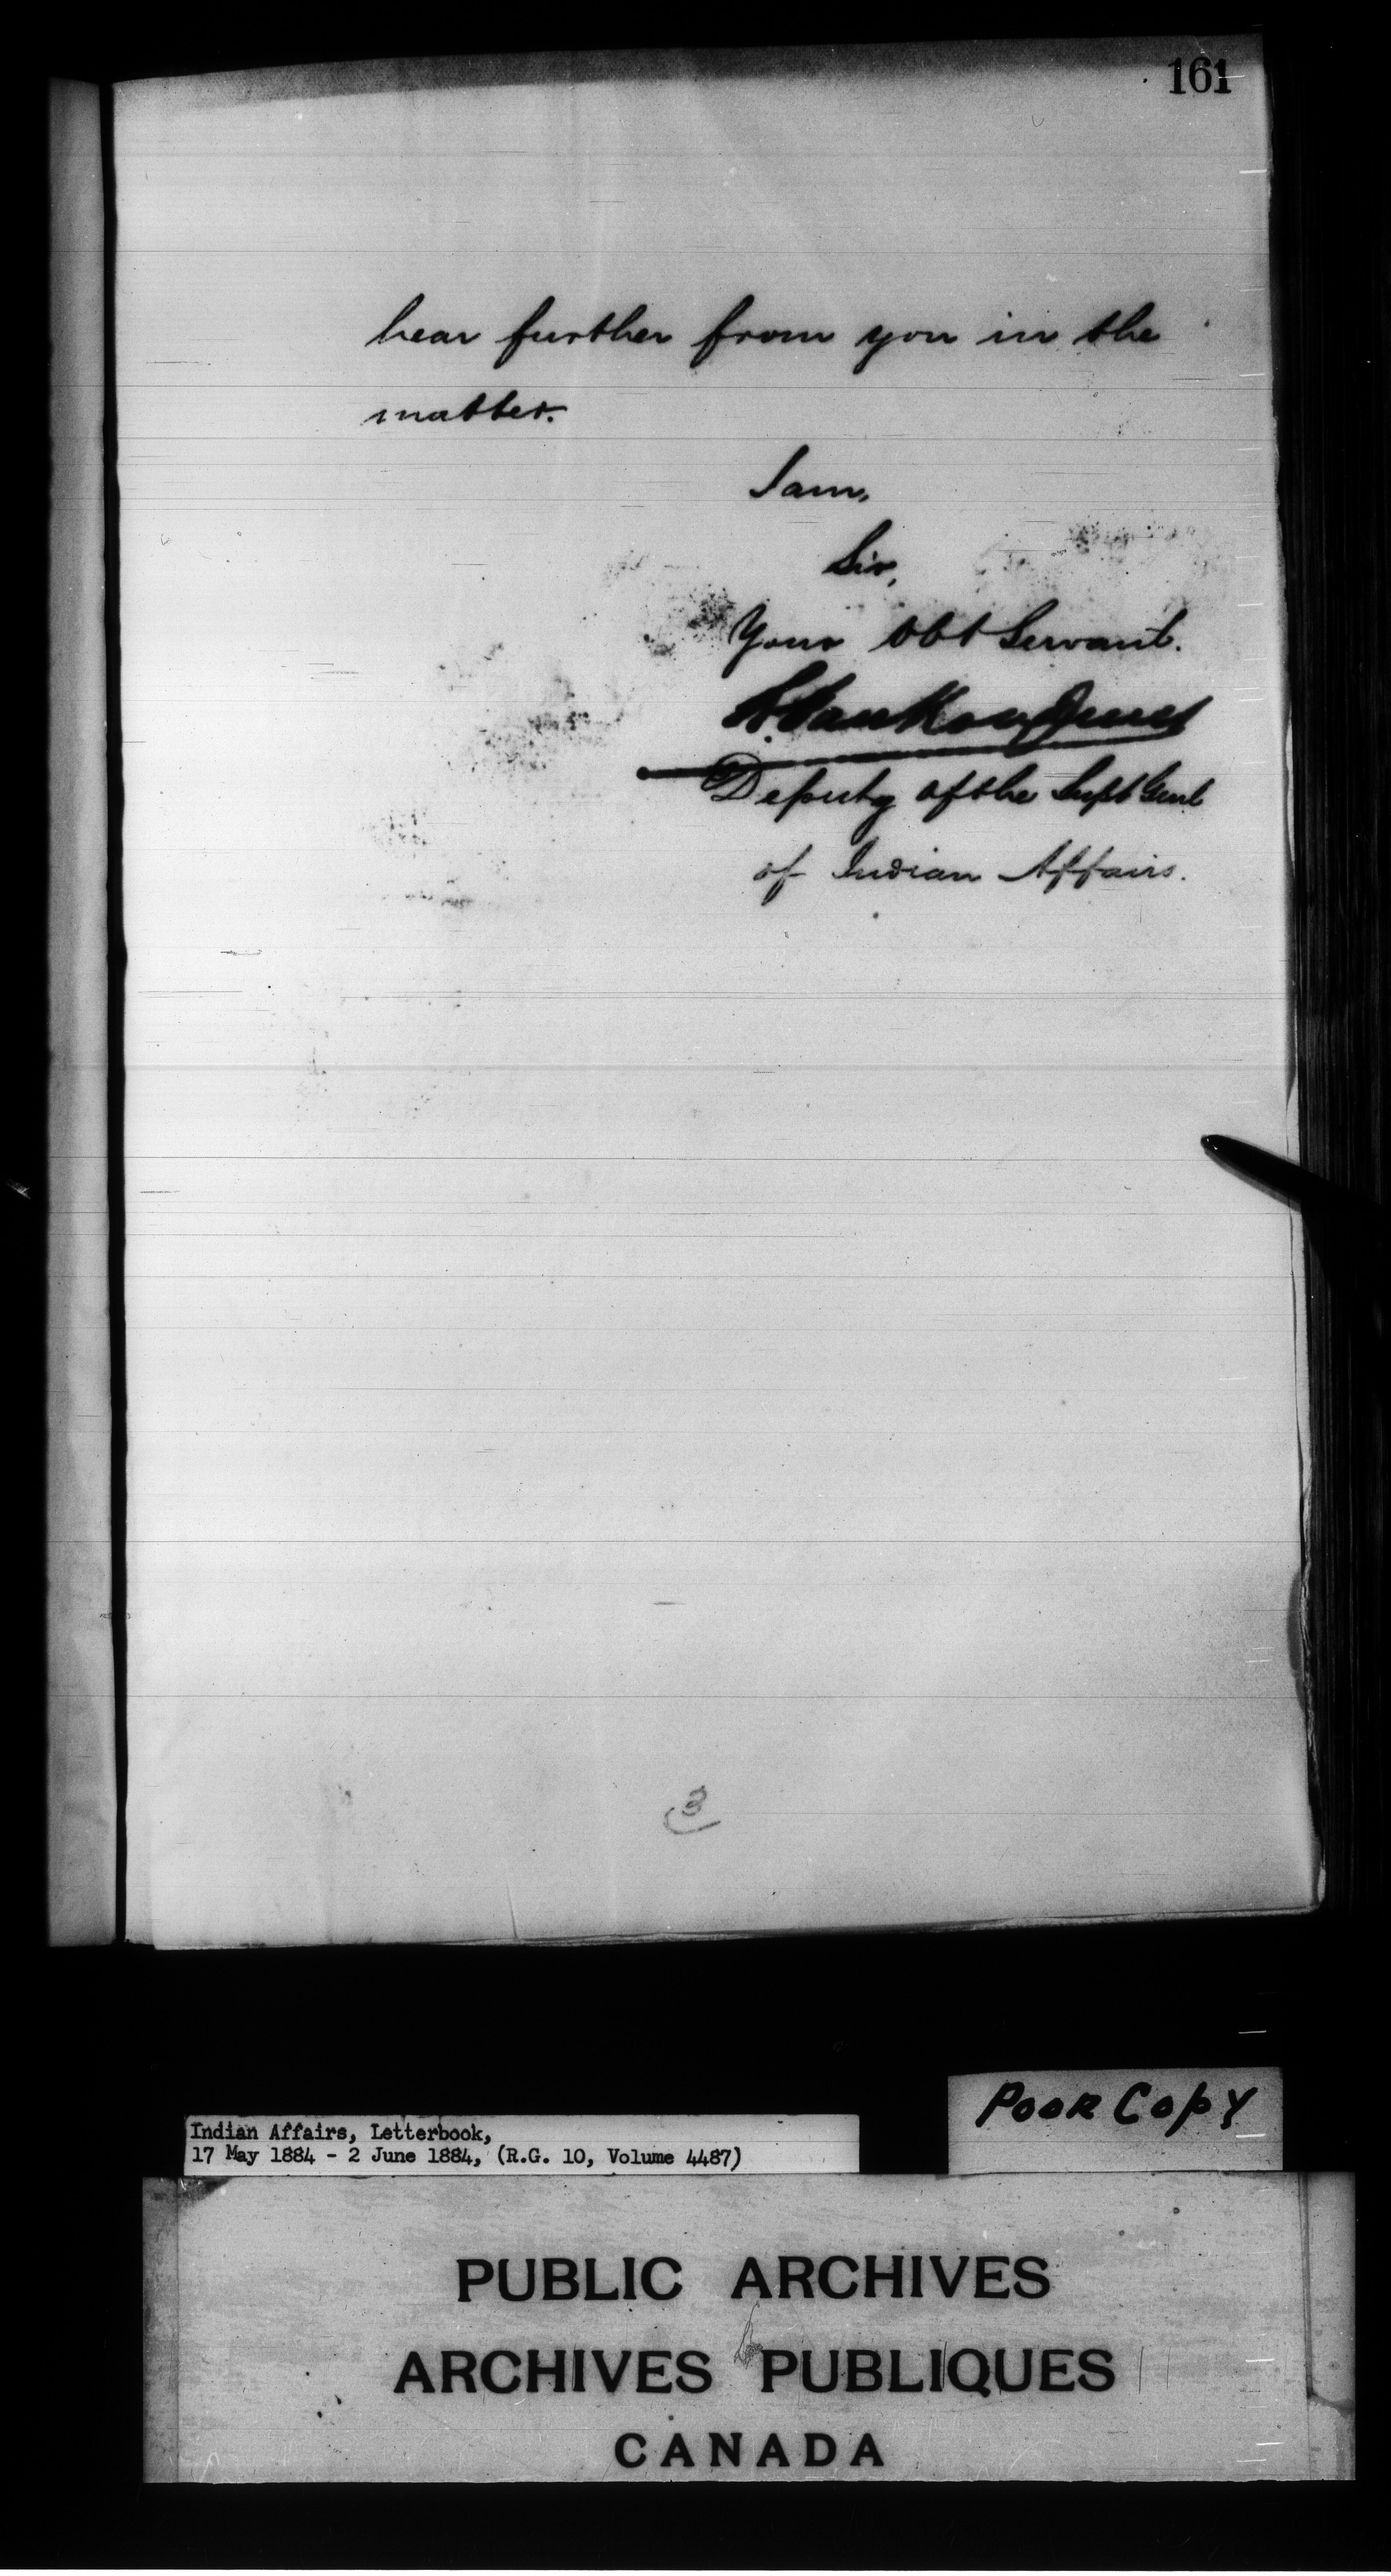 161
hear further from you in the
matter.
I am,
Sir,
Your Obt Servant.
L. VanKoughnet
Deputy of the Supt Genl
of Indian Affairs.
3
Poor Copy
Indian Affairs, Letterbook,
17 May 1884 - 2 June 1884, (R.G. 10, Volume 4487)
PUBLIC ARCHIVES
ARCHIVES PUBLIQUES
CANADA